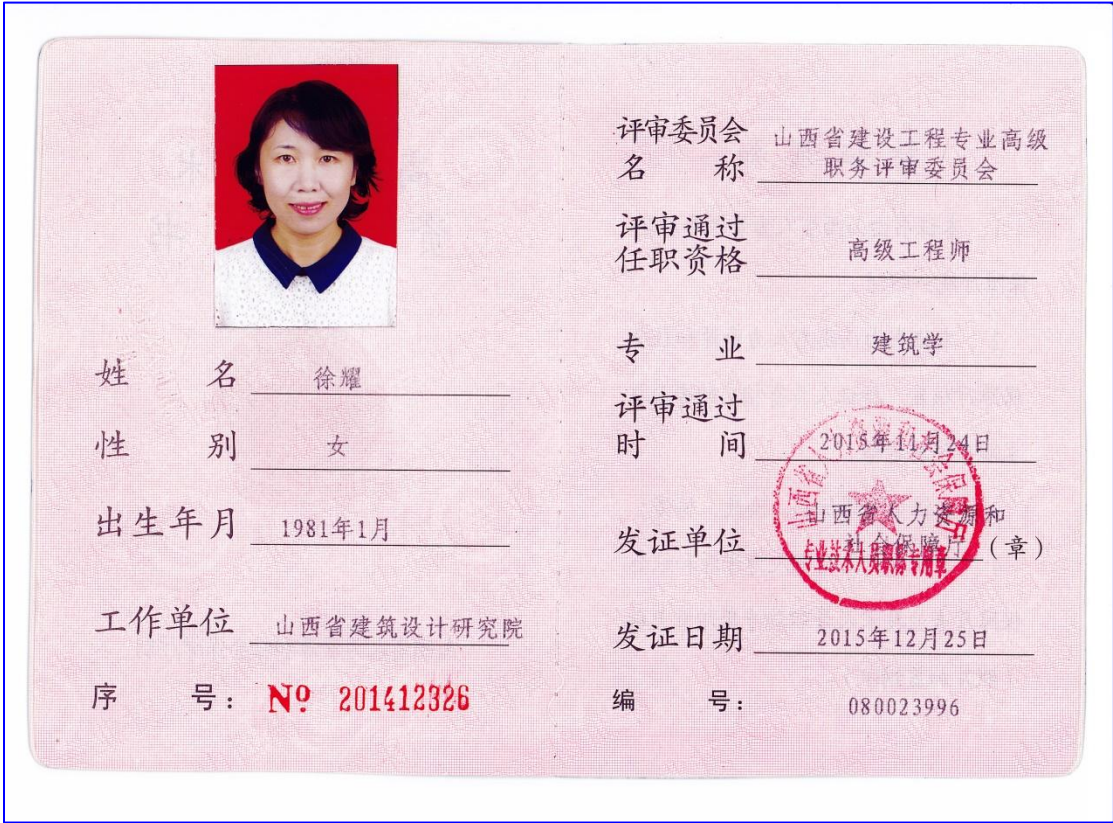 姓 名 徐耀
性 别 女
出生年月 1981年1月
工作单位 山西省建筑设计研究院
序 号: № 201412326
评审委员会
名 称
山西省建设工程专业高级
职务评审委员会
评审通过
任职资格
高级工程师
专 业 建筑学
评审通过
时 间
2015年11月24日
发证单位
山西省人力资源和
社会保障厅
(章)
山西省人力资源和社会保障厅
专业技术人员职务专用章
发证日期 2015年12月25日
编 号: 080023996